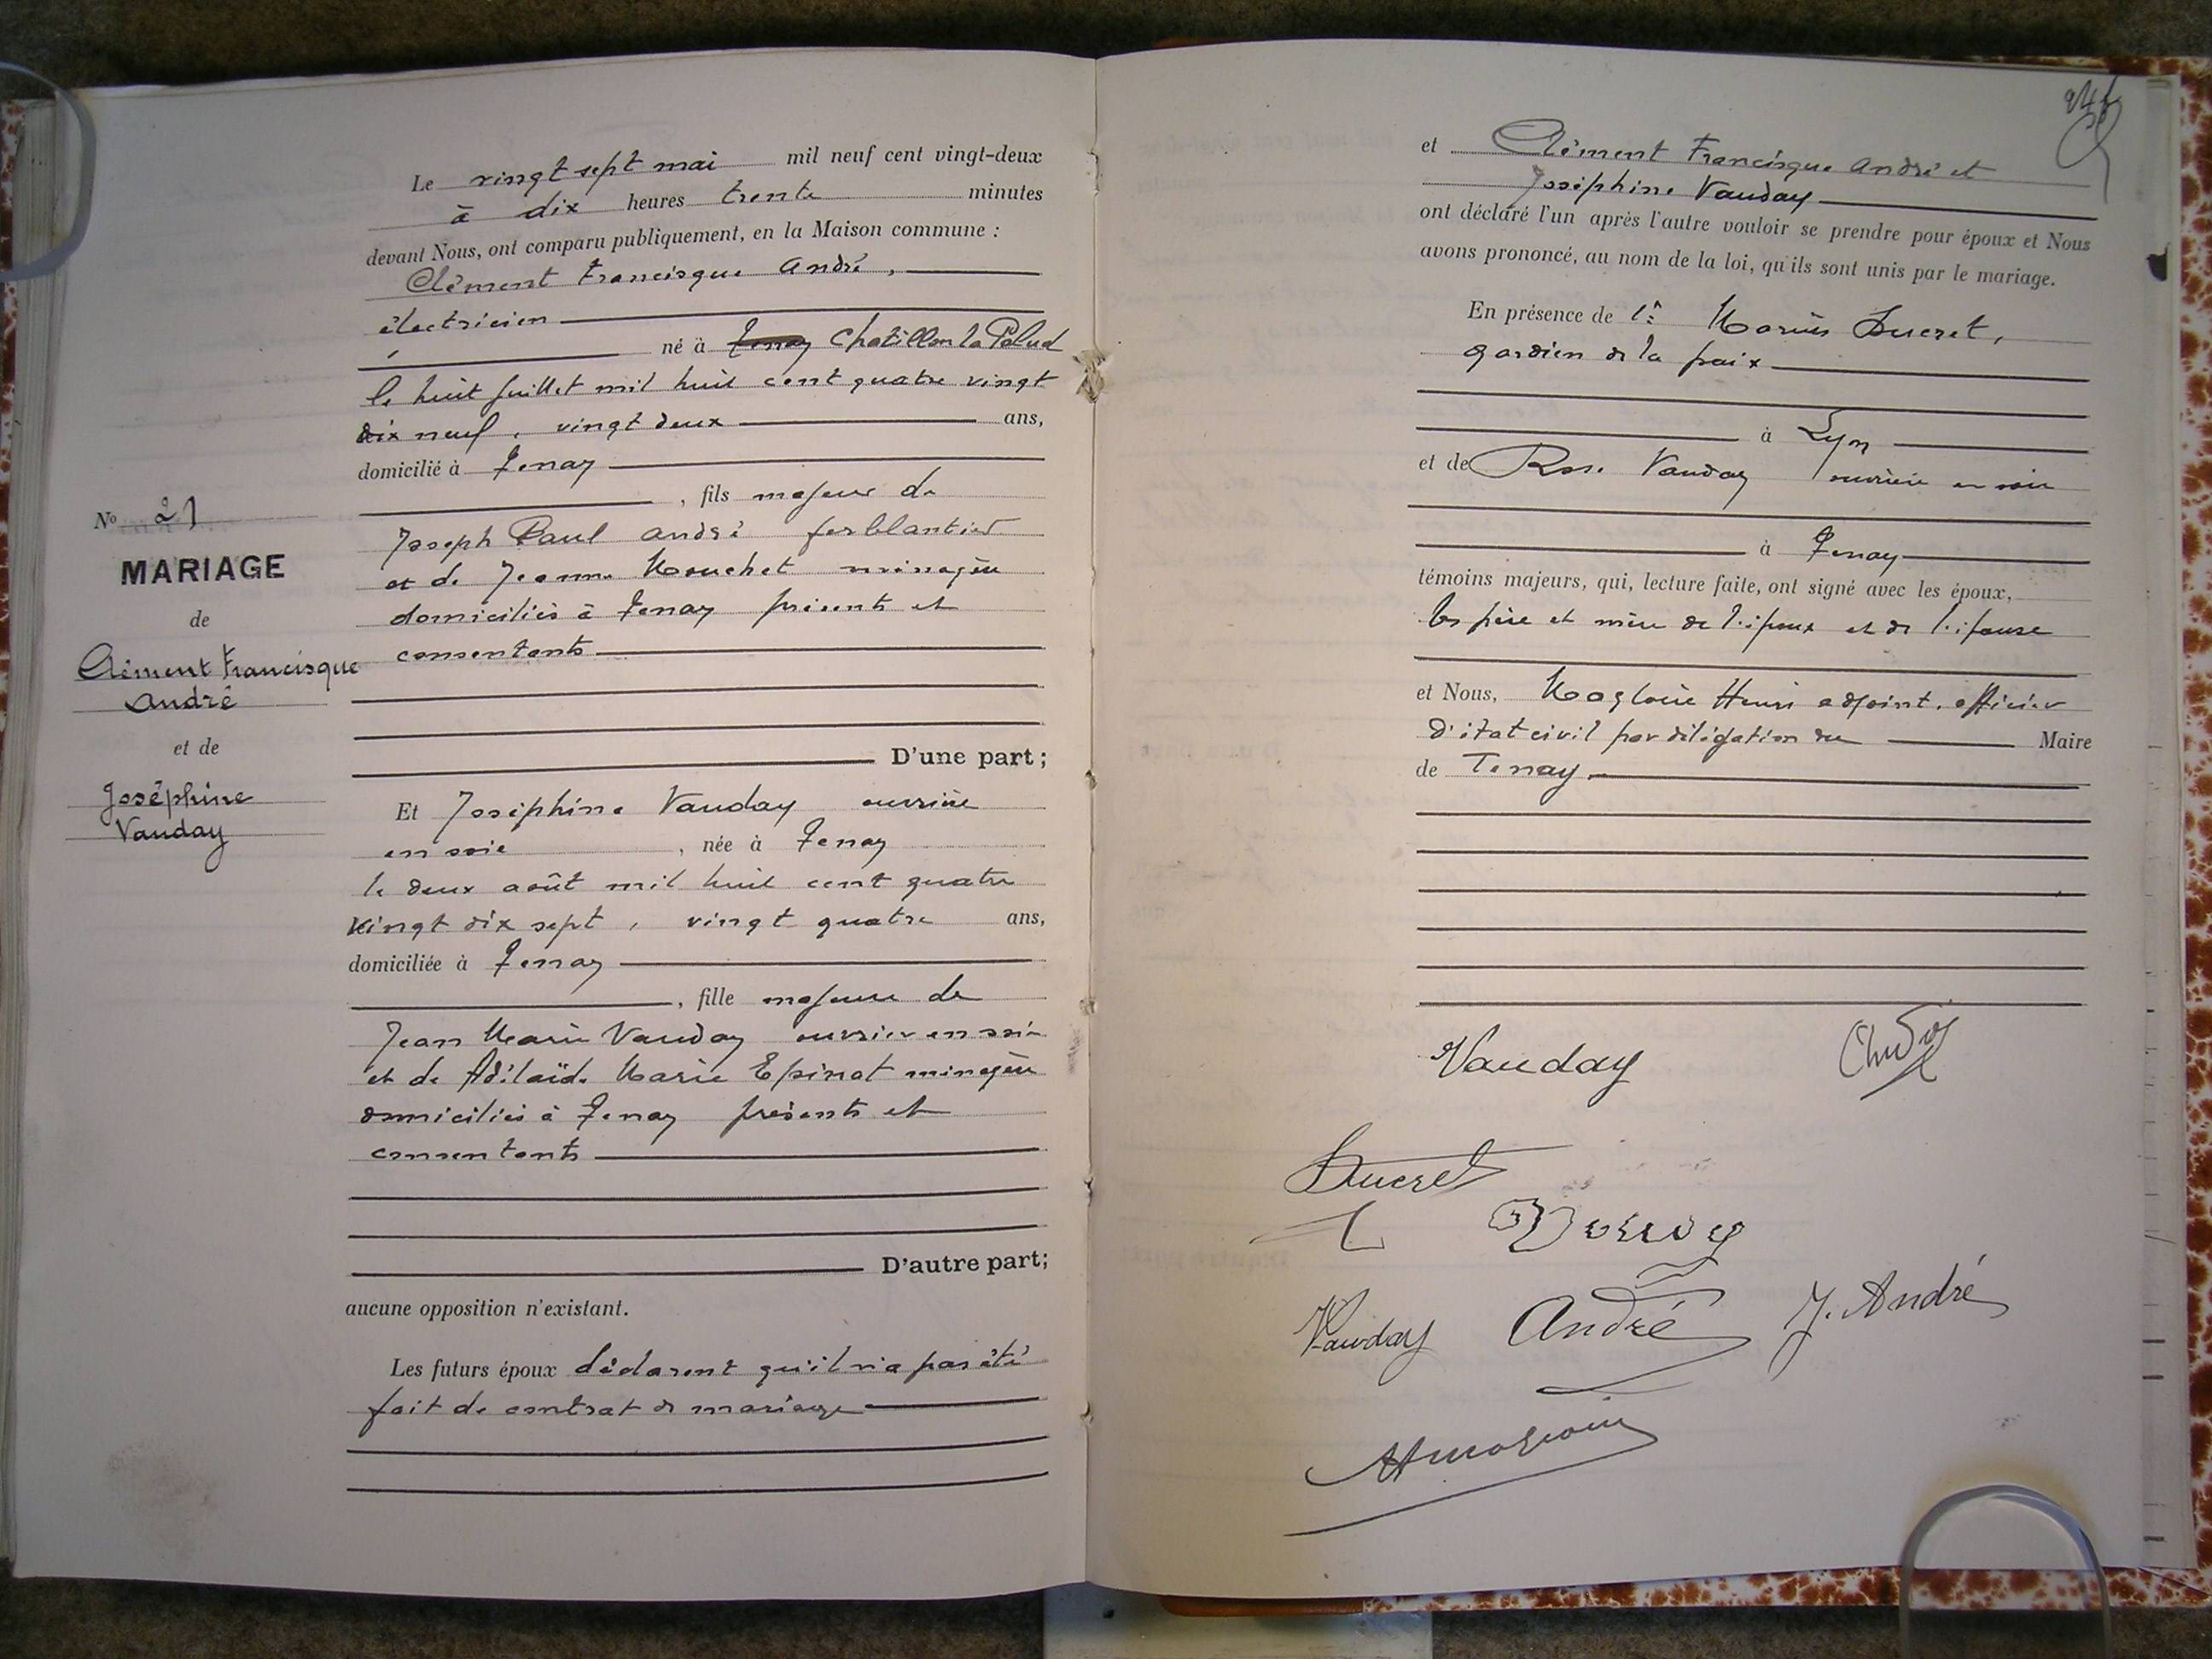 No 21
MARIAGE
de
Clément Francisque
André
et de
Joséphine
Vauday
Le vingt sept mai mil neuf cent vingt-deux
à dix heures trente minutes
devant Nous, ont comparu publiquement, en la Maison commune :
Clément Francisque André,
électricien
né à Tenay Chatillon la Palud
le huit juillet mil huit cent quatre vingt
dix neuf, vingt deux ans,
domicilié à Tenay
, fils majeur de
Joseph Paul André ferblantier
et de Jeanne Mouchet ménagère
domiciliés à Tenay présents et
consentants
D'une part ;
Et Joséphine Vauday ouvrière
en soie, née à Tenay
le deux août mil huit cent quatre
vingt dix sept, vingt quatre ans,
domiciliée à Tenay
, fille majeure de
Jean Marie Vauday ouvrier en soie
et de Adélaïde Marie Epinat ménagère
domiciliés à Tenay présents et
consentants
D'autre part ;
aucune opposition n'existant.
Les futurs époux déclarent qu'il n'a pas été
fait de contrat de mariage
et Clément Francisque André et
Joséphine Vauday
ont déclaré l'un après l'autre vouloir se prendre pour époux et Nous
avons prononcé, au nom de la loi, qu'ils sont unis par le mariage.
En présence de Marius Ducret,
gardien de la paix
à Lyon
et de Rose Vauday ouvrière en soie
à Tenay
témoins majeurs, qui, lecture faite, ont signé avec les époux,
les père et mère de l'époux et de l'épouse
et Nous, Magloire Henri adjoint, officier
d'état civil par délégation du Maire
de Tenay
Vauday
Ducret
Vauday André J. André